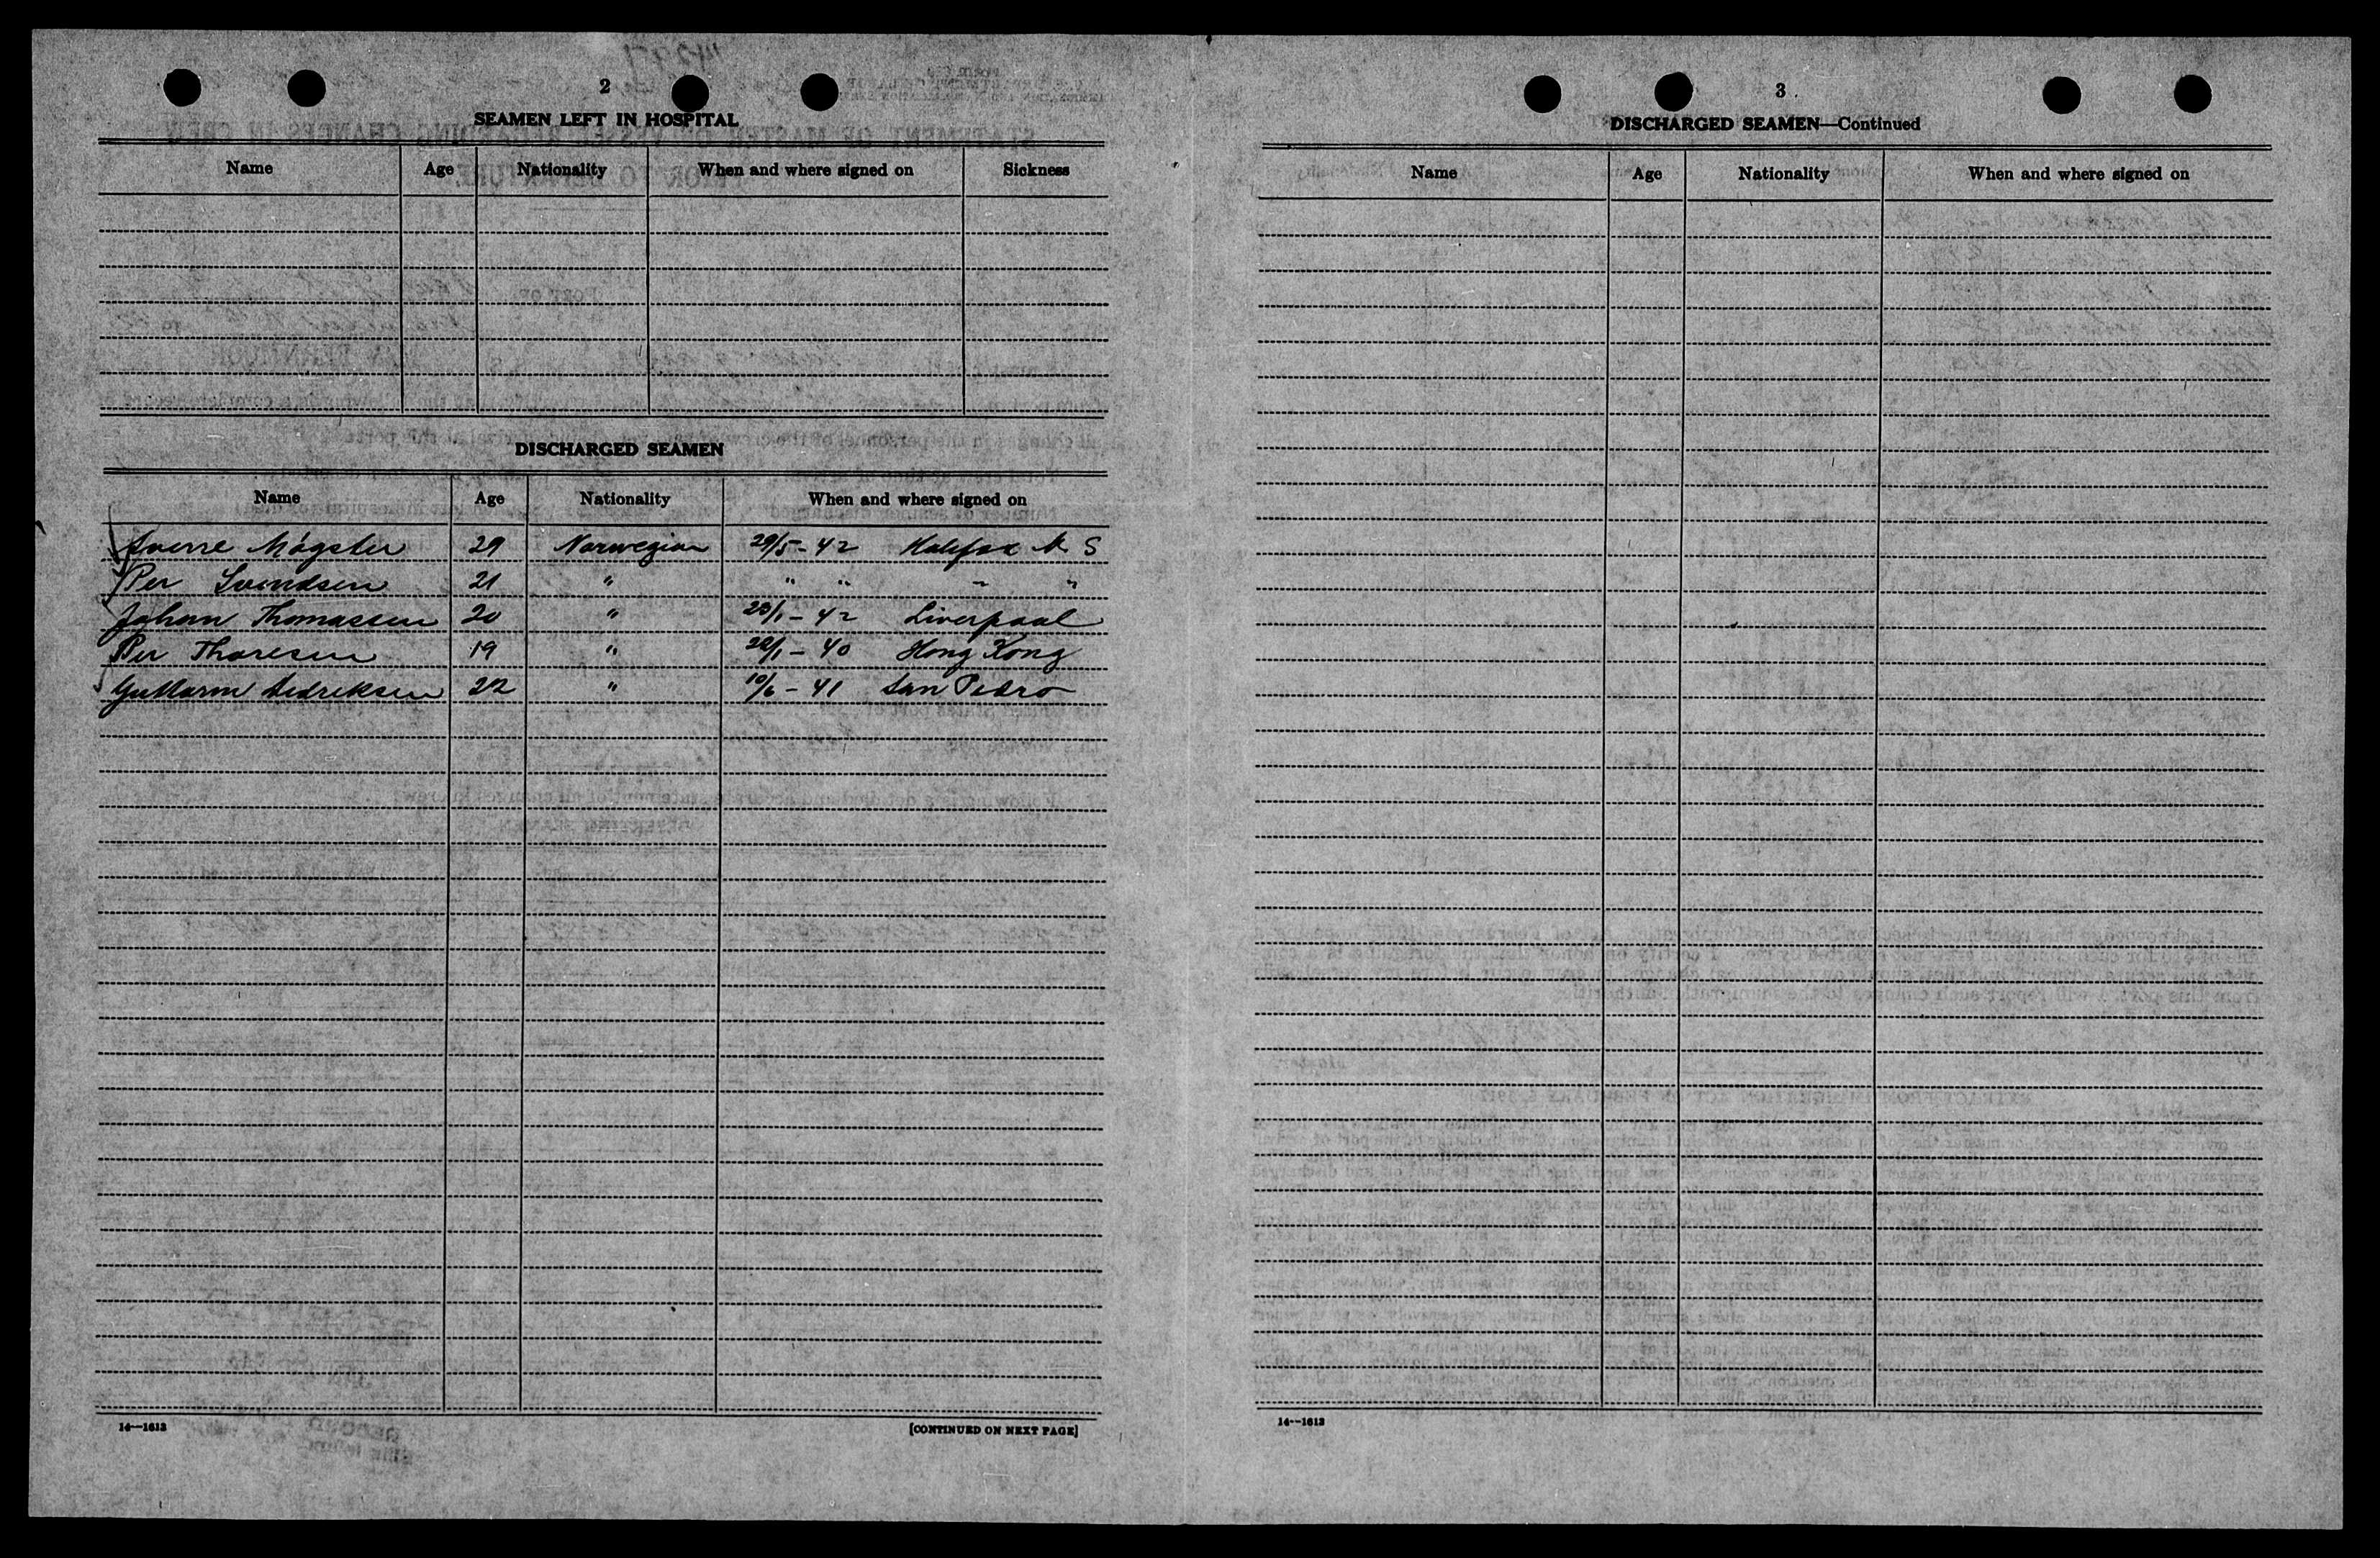 2
SEAMEN LEFT IN HOSPITAL
Name Age Nationality When and where signed on Sickness
DISCHARGED SEAMEN
Name Age Nationality When and where signed on
Sverre Mögster 29 Norwegian 29/5 - 42 Halifax N S
Per Svendsen 21 " " " " "
Johan Thomassen 20 " 23/1 - 42 Liverpool
Per Thoresen 19 " 22/1 - 40 Hong Kong
Guttorm Hedriksen 22 " 10/6 - 41 San Pedro
14—1613
[CONTINUED ON NEXT PAGE]
3
DISCHARGED SEAMEN—Continued
Name Age Nationality When and where signed on
14—1613